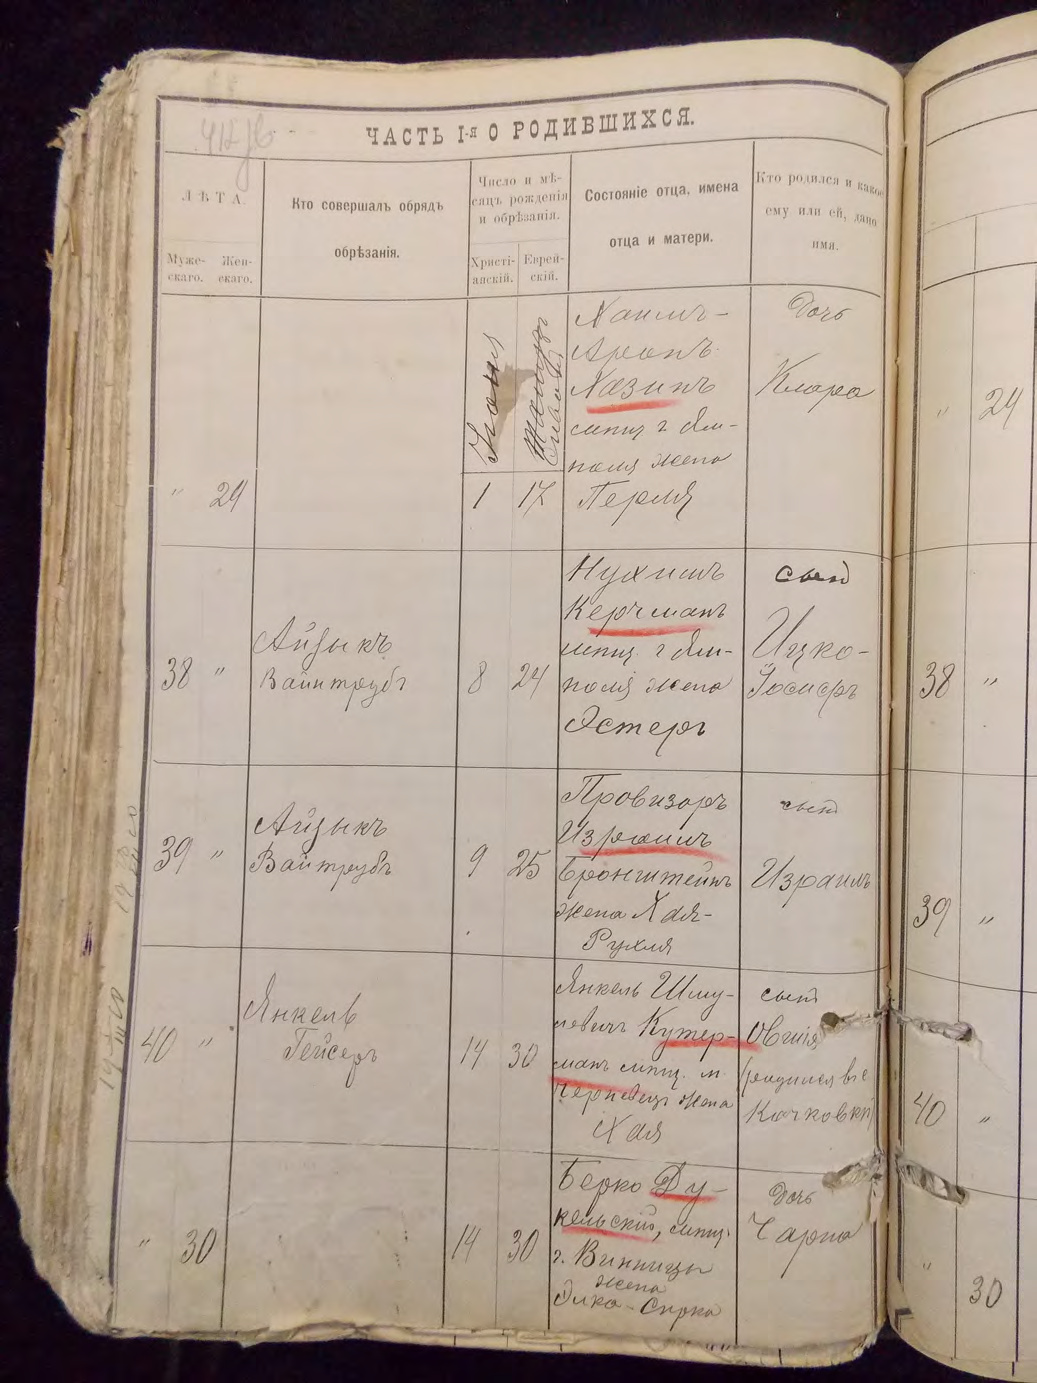 ЧАСТЬ I-я О РОДИВШИХСЯ.
ЛѢТА.
Муже-
скаго.
Жен-
скаго.
Кто совершалъ обрядъ
обрѣзанія.
Число и мѣ-
сяцъ рожденія
и обрѣзанія.
Христі-
анскій.
Еврей-
скій.
Состояніе отца, имена
отца и матери.
Кто родился и какое
ему или ей, дано
имя.
" 29
Іюня
1
17
Хаимъ-
Аронъ
Хазинъ
мѣщ г Ям-
поля жена
Перля
Дочь
Клара
" 29
38 "
Айзыкъ
Вайнтрубъ
8
24
Нухимъ
Керчманъ
мѣщ. г Ям-
поля жена
Эстеръ
сынъ
Ицко-
Іосифъ
38 "
39 "
Айзыкъ
Вайтрубъ
9
25
Провизоръ
Израиль
Бронштейнъ
жена Хая-
Рухля
сынъ
Израиль
39 "
40 "
Янкель
Гейсеръ
14
30
Янкель Шму-
левичъ Кутер-
манъ мѣщ. м.
Черневецъ жена
Хая
сынъ
Овшія
(родился въ с
Качковкѣ)
40 "
" 30
14
30
Берко Ду-
кельскій, мѣщ.
г. Винницы
жена
Элка-Сирка
дочь
Чарна
" 30